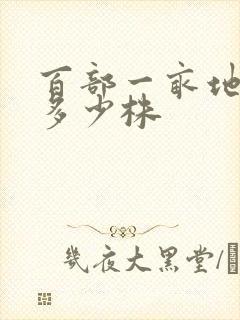 百部一亩地
多少株
几夜大黑堂/